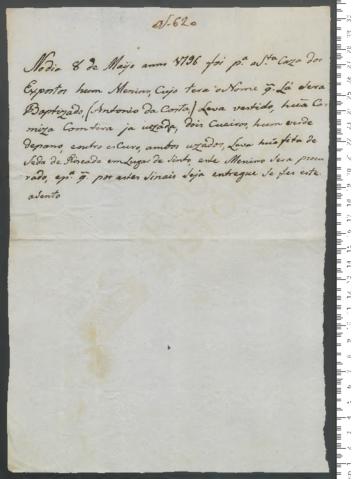 N. 620
No dia 8 de Maijo anno 1796 foi pª a Stª Caza dos
Expostos hum Menino, Cujo terá o Nome q̃. Lá Sera
Baptizado, (Antonio da Costa) Leva vestido, huã Ca-
miza Com tira ja uzada, dois Cueiros, hum verde
de pano, e outro escuro, ambos uzados, Leva huã fita de
Seda de em Lugar de Sinto, este Menino Sera procu-
rado, e pª q̃. por estes Sinais Seja entregue Se fes este
asento